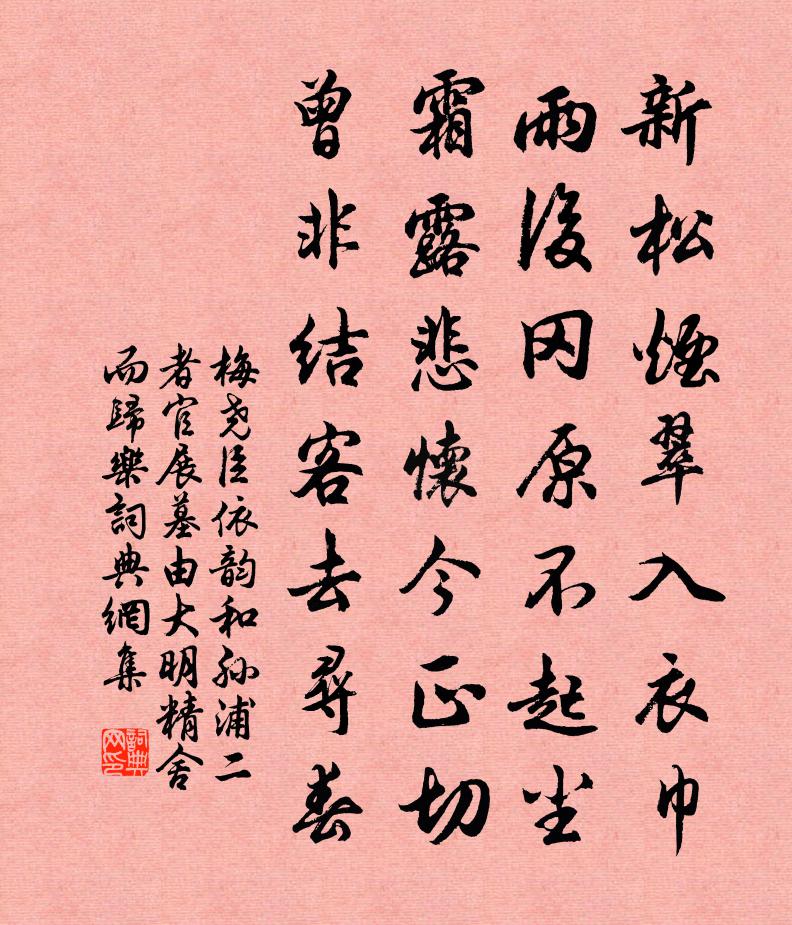 新松煙翠入衣巾
雨後冈原不起尘
霜露悲懷今正切
曾非结客去尋春
梅尧臣依韵和孙浦二
者官展墓由大明精舍
而歸樂詞典網集
詞典
网印